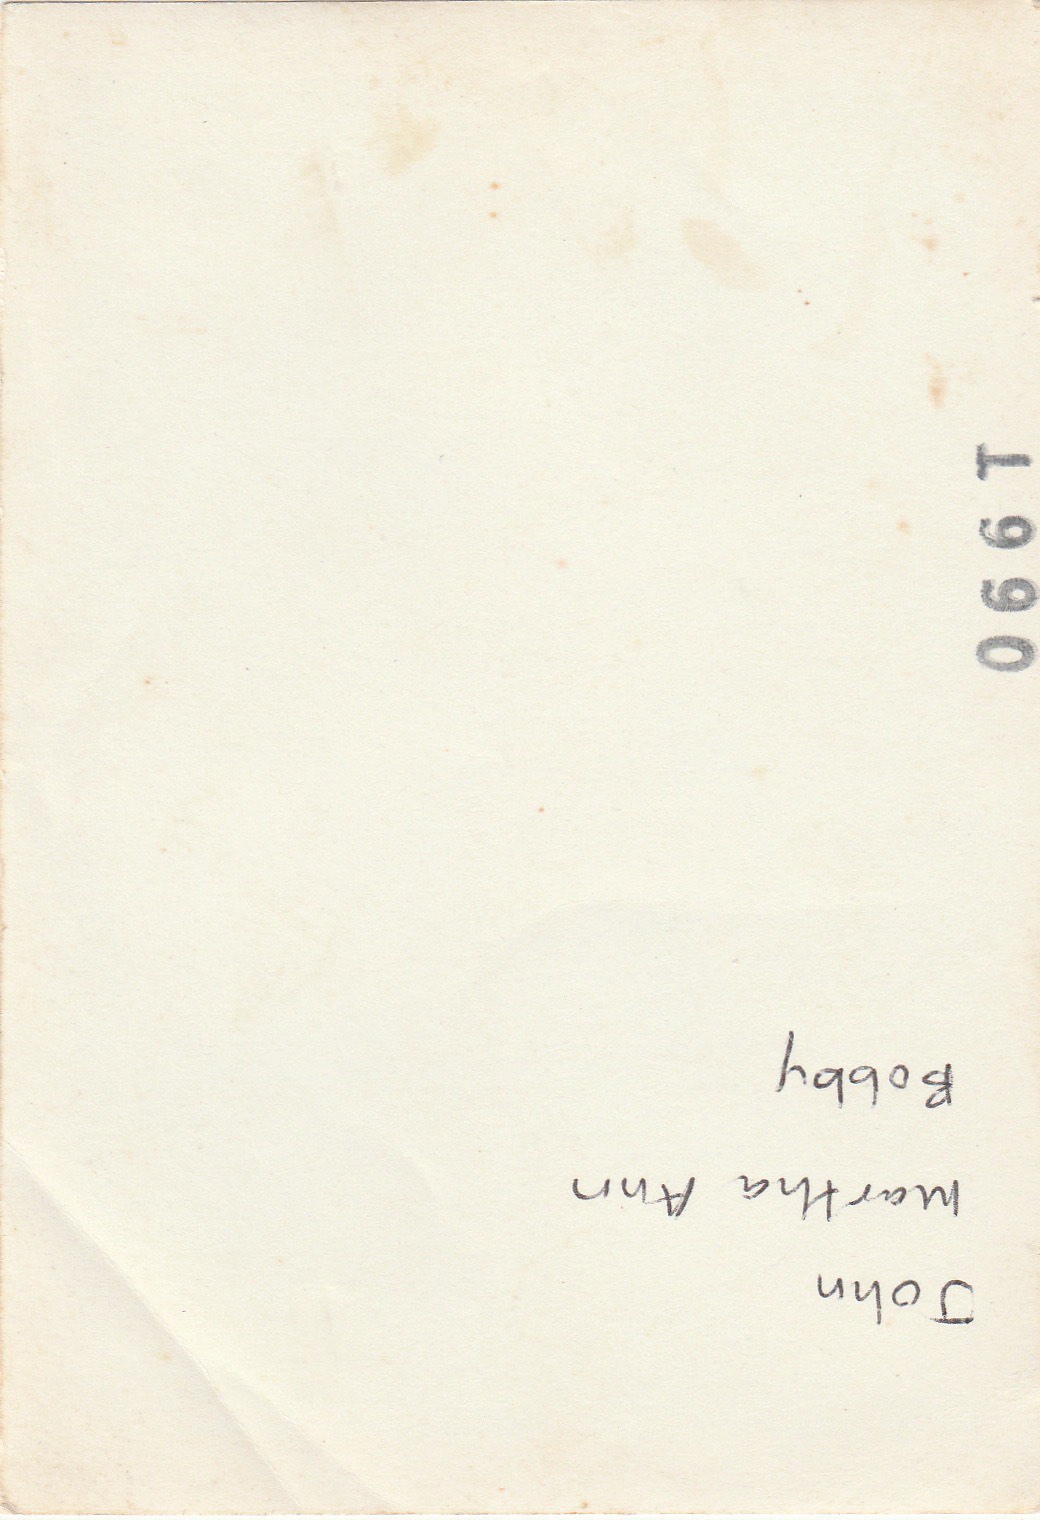 John
Martha Ann
Bobby
066T